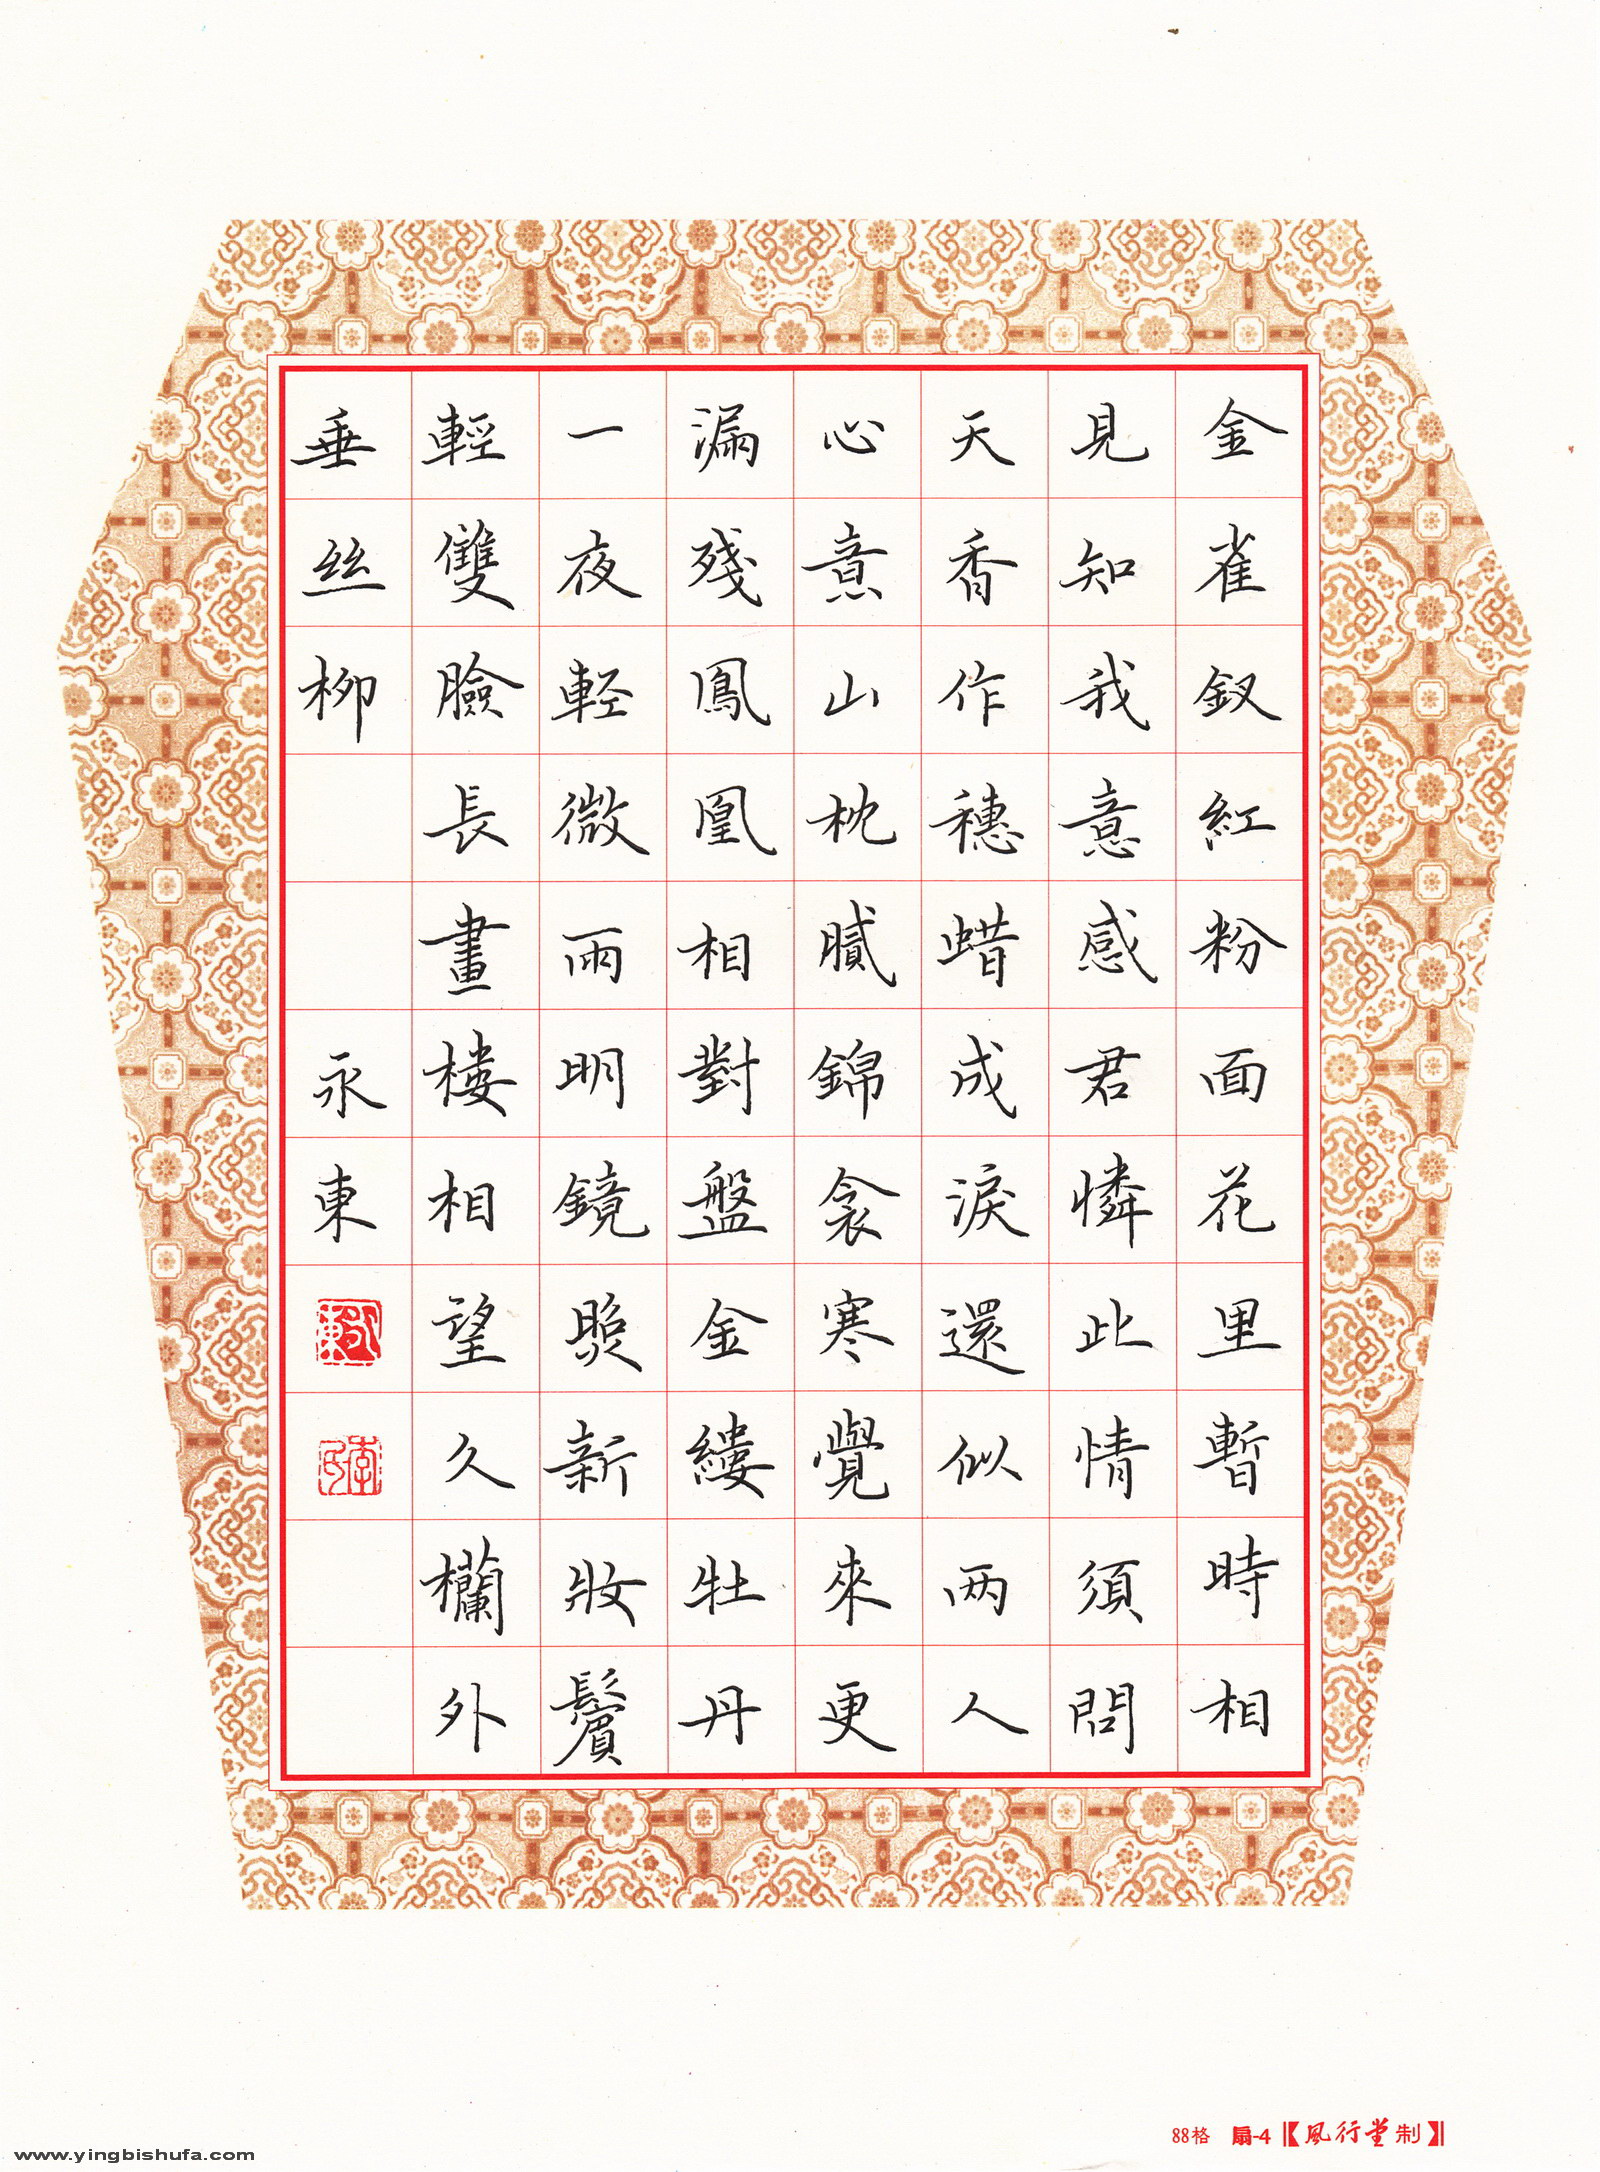 金雀釵紅粉面花里暫時相
見知我意感君憐此情須問
天香作穗蜡成淚還似两人
心意山枕膩錦衾寒覺來更
漏殘鳳凰相對盤金縷牡丹
一夜軽微雨明鏡照新妝鬢
輕雙臉長畫楼相望久欄外
垂丝柳永東
88格 扇-4【風行堂制】
www.yingbishufa.com